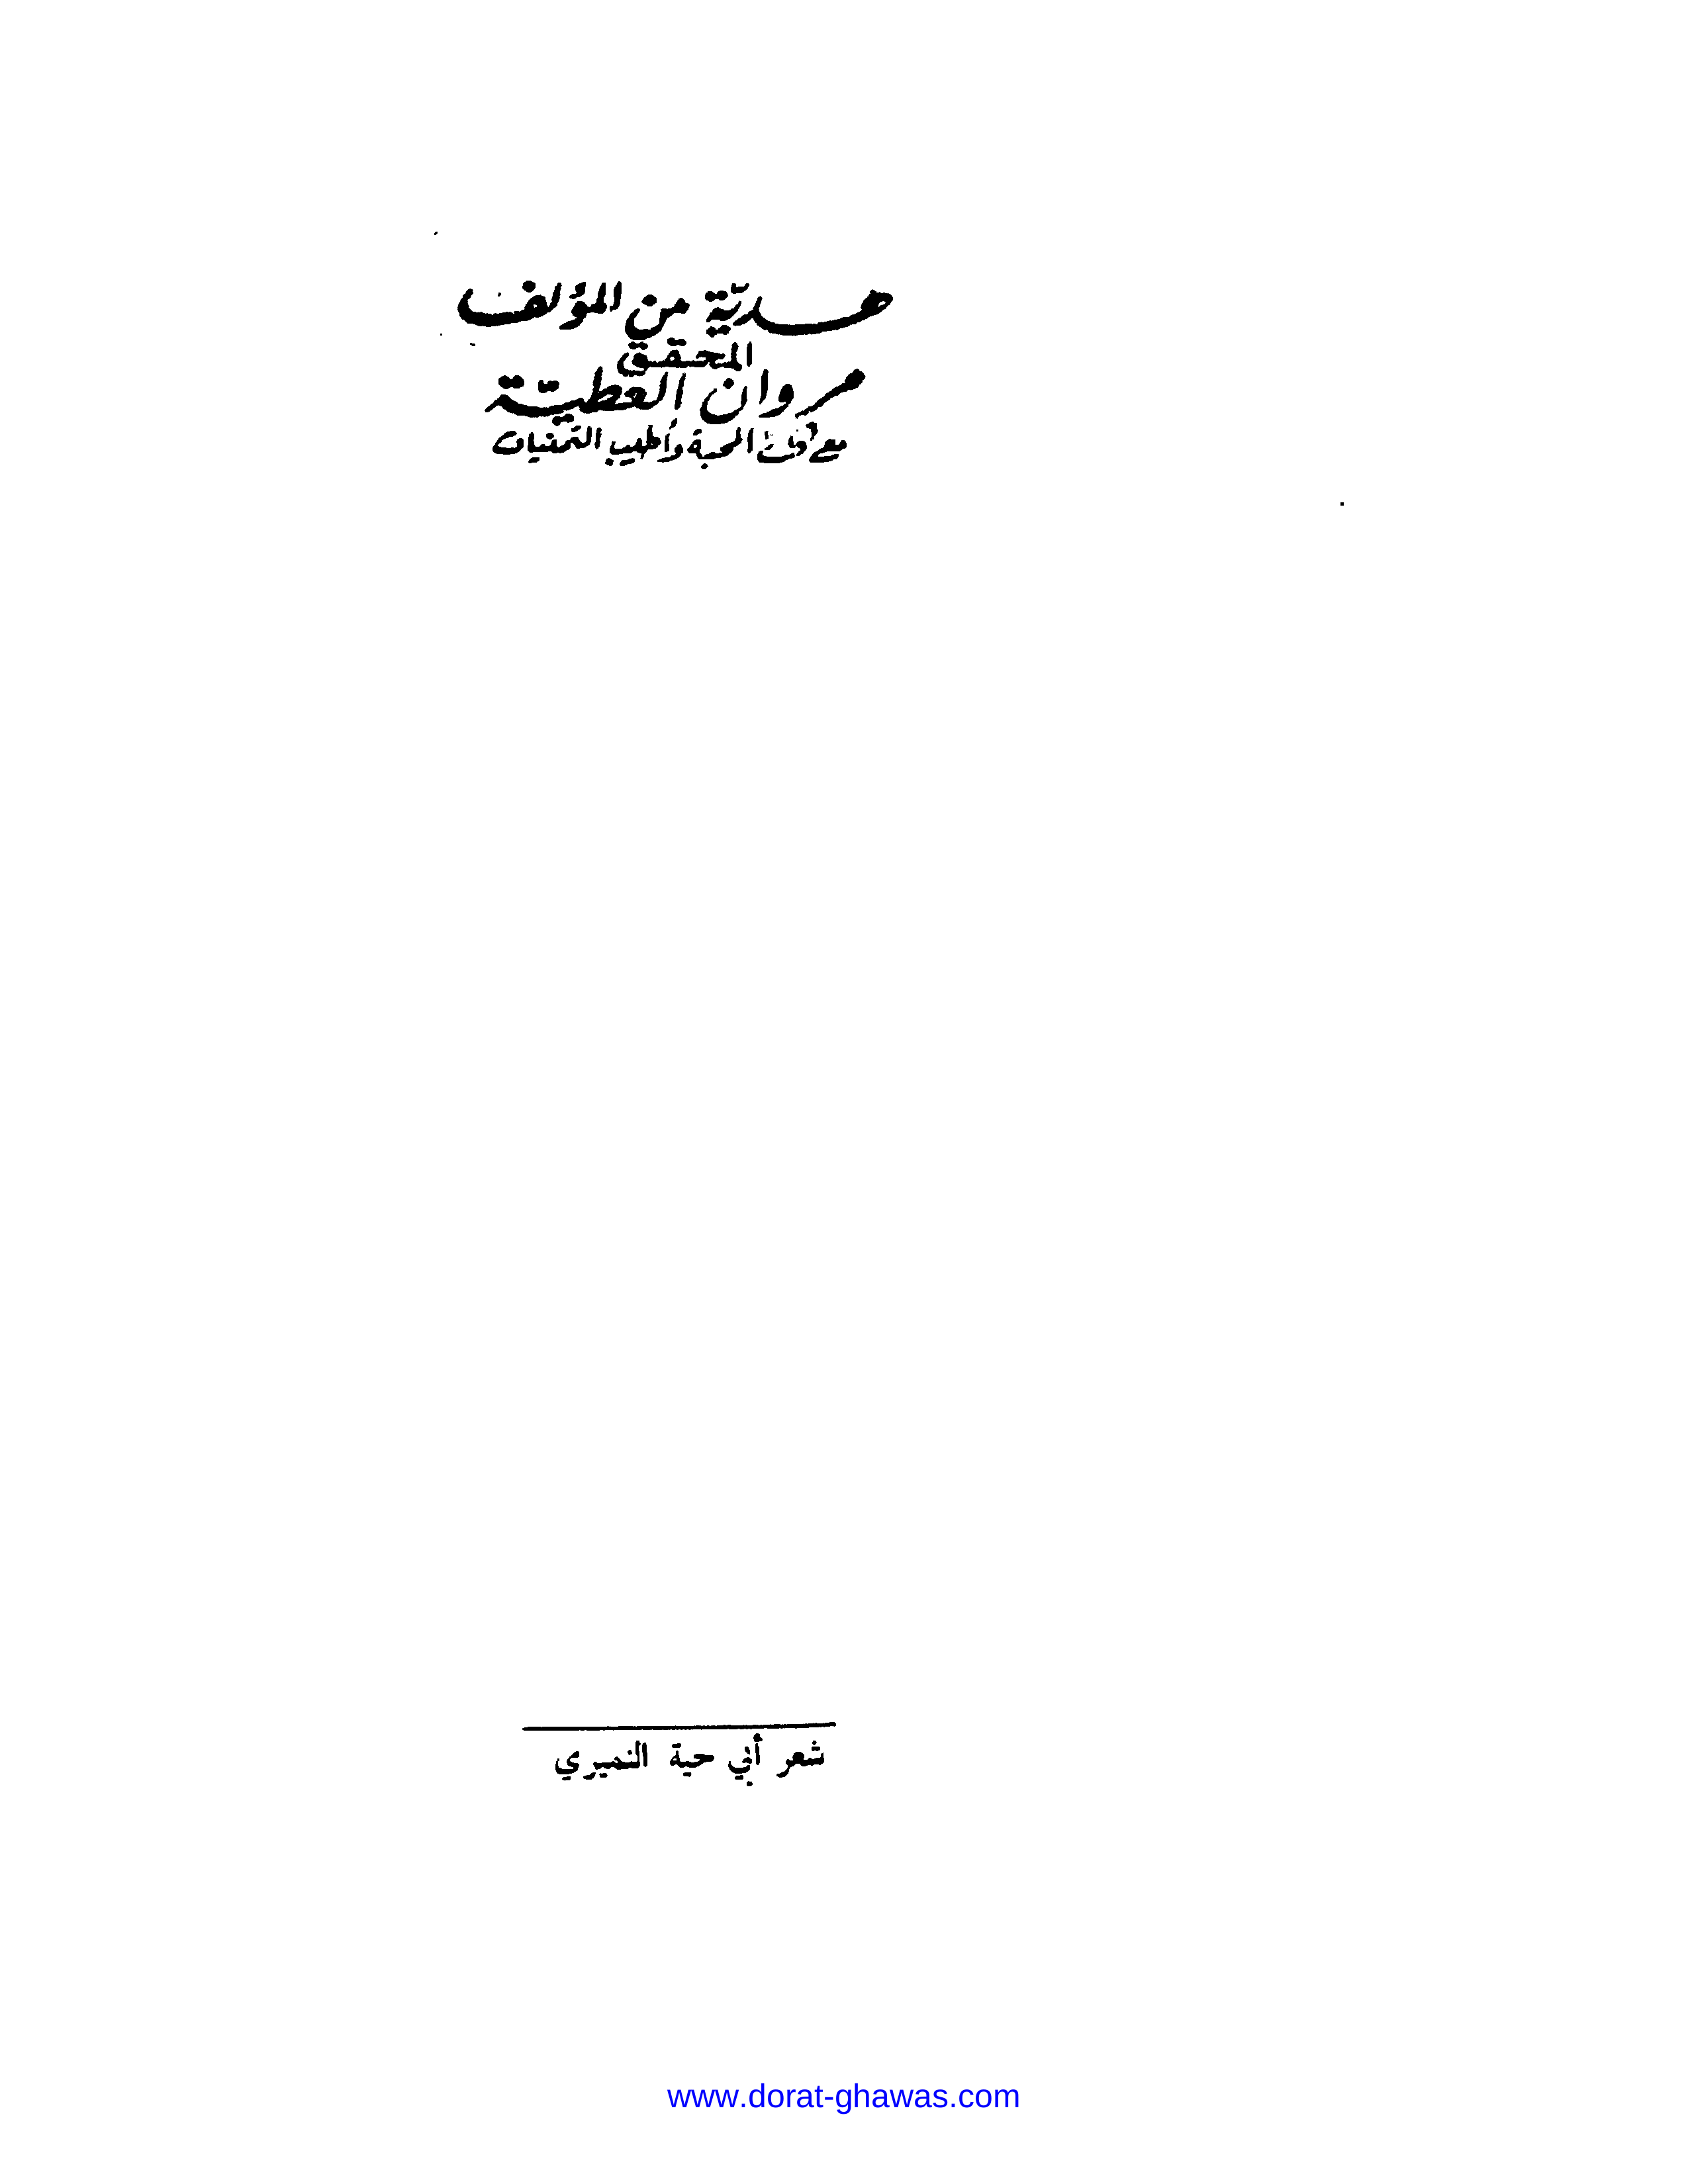 هديّة من المؤلف
المحقق
مروان العطيّة
مع المحبة وأطيب التمنيات
شعر أبي حية النميري
www.dorat-ghawas.com